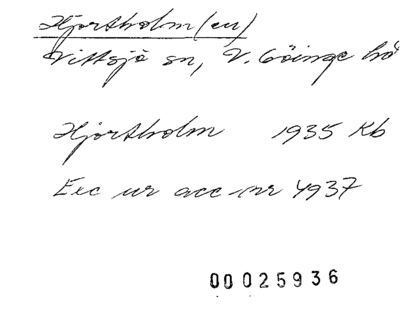 Hjortholm (en)
Vittsjö sn, V. Göinge hd
Hjortholm 1935 Kb
Exc ur acc nr 4937
00025936